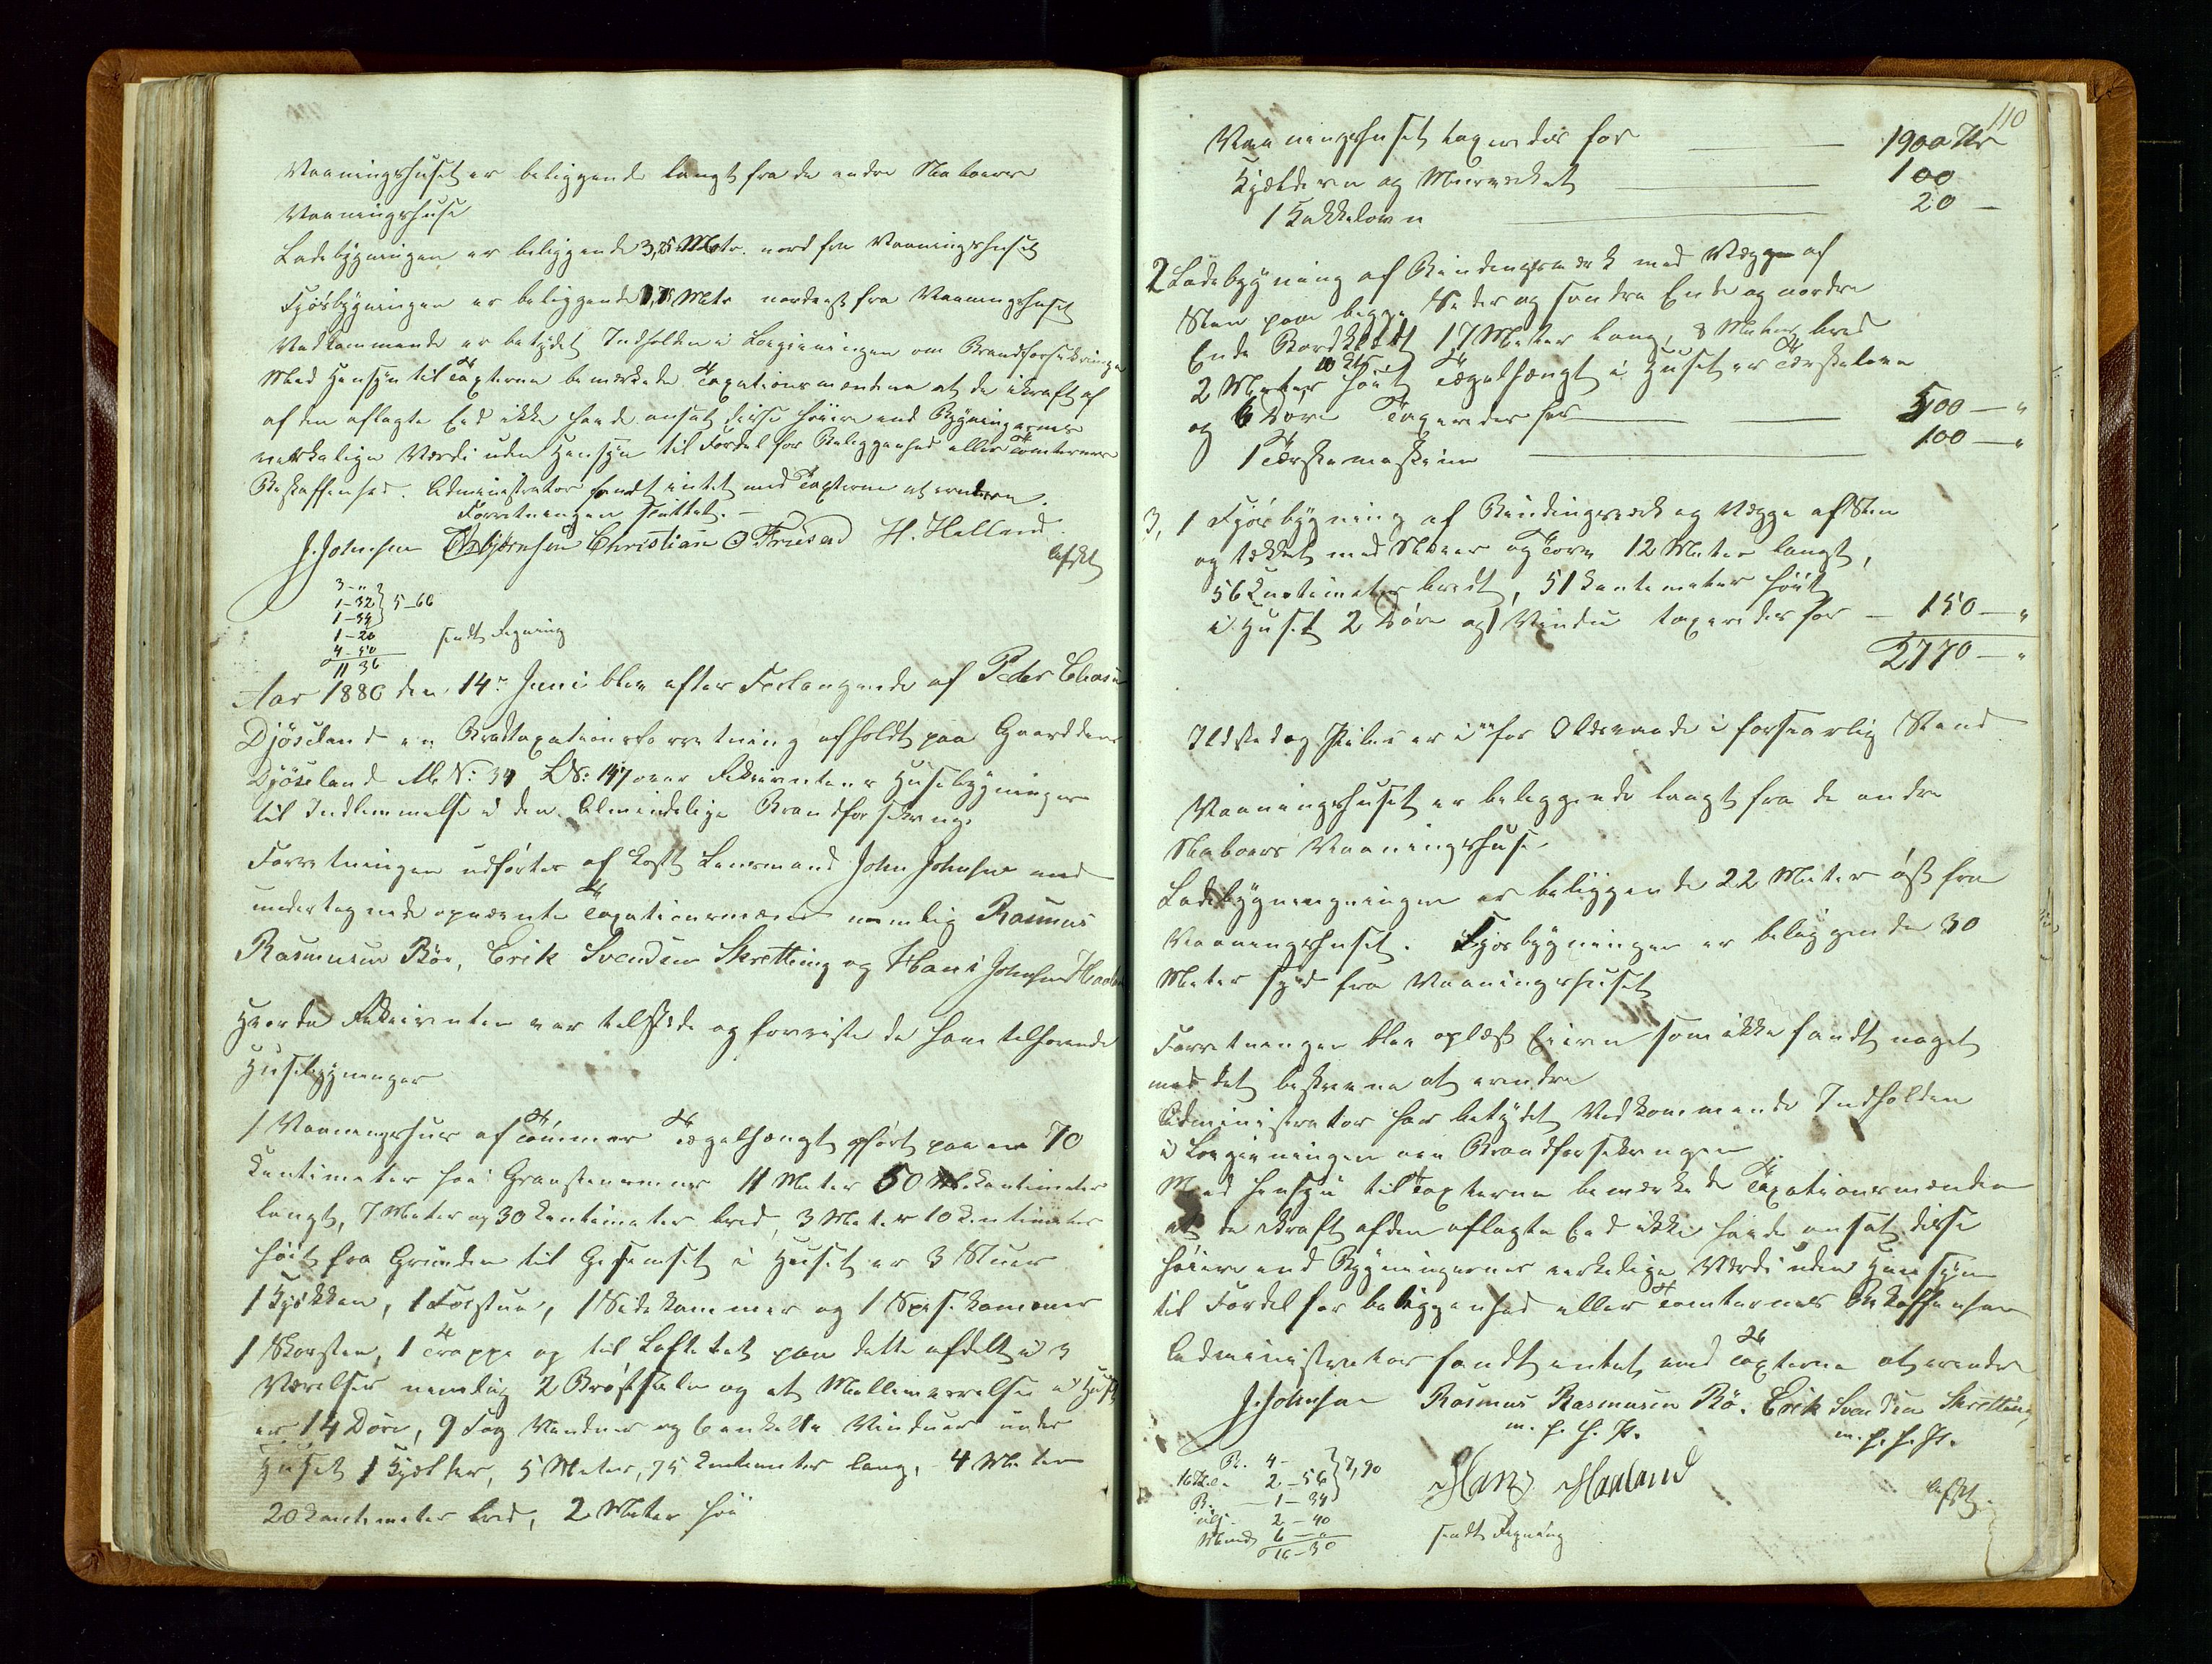 Vaaningshuset er beliggende langt fra de andre Naboers
Vaaningshuse
Ladebygningen er beliggende 3,25 Metr. nord fra Vaaningshuset
Fjösbygningen er beliggende Metr nordost fra Vaaningshuset
Vedkommende er betydet Indholden i Lovgivningen om Brandforsikringen
Med Hensyn til Taxterne bemærkede Taxationsmændene at de ikraft af
af den aflagte Eed ikke havde ansat disse höiere end Bygningernes
virkelige Værdi uden Hensyn til Fordel for Beliggenhed eller Tomternes
Beskaffenhed. Administrator fandt intet med Taxterne at erindre.
Forretningen sluttet. –
J. Johnsen Christian O Friesad H. Helland
Afskt
3 - "
1 - 32 } 5-66
1 - 34
1 - 20
4 - 50
11 36
sendt Regning
Aar 1880 den 14de Juni blev efter Forlangende af Peder Eliasen
Djöseland en Brandtaxationsforretning afholdt paa Gaarden
Djöseland M. N: 34 LN: 147 over Rekvirentens Husebygninger
til Indlemmelse i den Almindelige Brandforsikring.
Forretningen udförtes af Const Lensmand John Johnsen med
undertegnede opnævnte Taxationsmænd nemlig Rasmus
Rasmusen Röe, Erik Svendsen Skretting og Hans Johnsen Haaland
Hvorda Rekvirenten var tilstede og foreviste de ham tilhörende
Husebygninger
1 Vaaningshuus af Tömmer Tægelhængt opfört paa en 70
Centimeter höi Graastensmuur 11 Meter 50 Centimeter
langt, 7 Meter og 30 Centimeter bred, 3 Meter 10 Centimeter
höit fra Grunden til Gesimset i Huset er 3 Stuer
1 Kjökken, 1 Forstue, 1 Sidekammer og 1 Spisekammer
1 Skorsten, 1 Trappe og til Loftet paa dette afdelt i 3
Værelser nemlig 2 Bröstsale og et Mellemværelse i Huset
er 14 Döre, 9 Fag Vinduer og 6 enkelte Vinduer under
Huset 1 Kjelder, 5 Meter, 75 Centimeter lang, 4 Meter
20 Centimeter bred, 2 Meter höi
110
Vaaningshuset taxeredes for 1900 Kr
Kjælderen og Murværket 100
1 Kakkelovn 20 –
2 Ladebygning af Bindingsværk med Vægge af
Sten paa begge Sider og söndre Ende og nordre
Ende Bordklædt 17 Meter lang, 8 Meter bred
2 Meter 10 Ctr höit Tægelhængt i Huset er Tærskelove
og 6 Döre Taxeredes for 500 – "
1 Tærskemaskine 100 – "
3, 1 Fjösbygning af Bindingsværk og Vægge af Sten
og tækket med Næver og Torv 12 Meter langt,
56 Centimeter bredt, 51 Centimeter höit
i Huset 2 Döre og 1 Vindu taxeredes for – 150 – "
2770 – "
Ildsted og Piber er i forsvarlig Stand
Vaaningshuset er beliggende langt fra de andre
Naboers Vaaningshuse
Ladebygningningen er beliggende 22 Meter öst fra
Vaaningshuset. Fjösbygningen er beliggende 30
Meter syd fra Vaaningshuset
Forretningen blev oplæst Eieren som ikke fandt noget
med det beskrevne at erindre
Administrator har betydet Vedkommende Indholden
i Lovgivningen om Brandforsikringen
Med Hensyn til Taxterne bemærkede Taxationsmændene
at de ikraft af den aflagte Eed ikke havde ansat disse
höiere end Bygningernes virkelige Værdi uden Hensyn
til Fordel for beliggenhed eller Tomternes Beskaffenhed
Administrator fandt intet med Taxterne at erindre
J. Johnsen Rasmus Rasmusen Rö. Erik Svendsen Skretting
m. p. P. m. p. P.
B. 4 –
2 – 56 } 7,90
B. 1 – 34
2 – 40
6 – "
16 – 30
Hans Haaland
Afskt.
sendt Regning